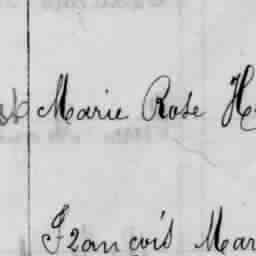 Marie Rose H
François Mar